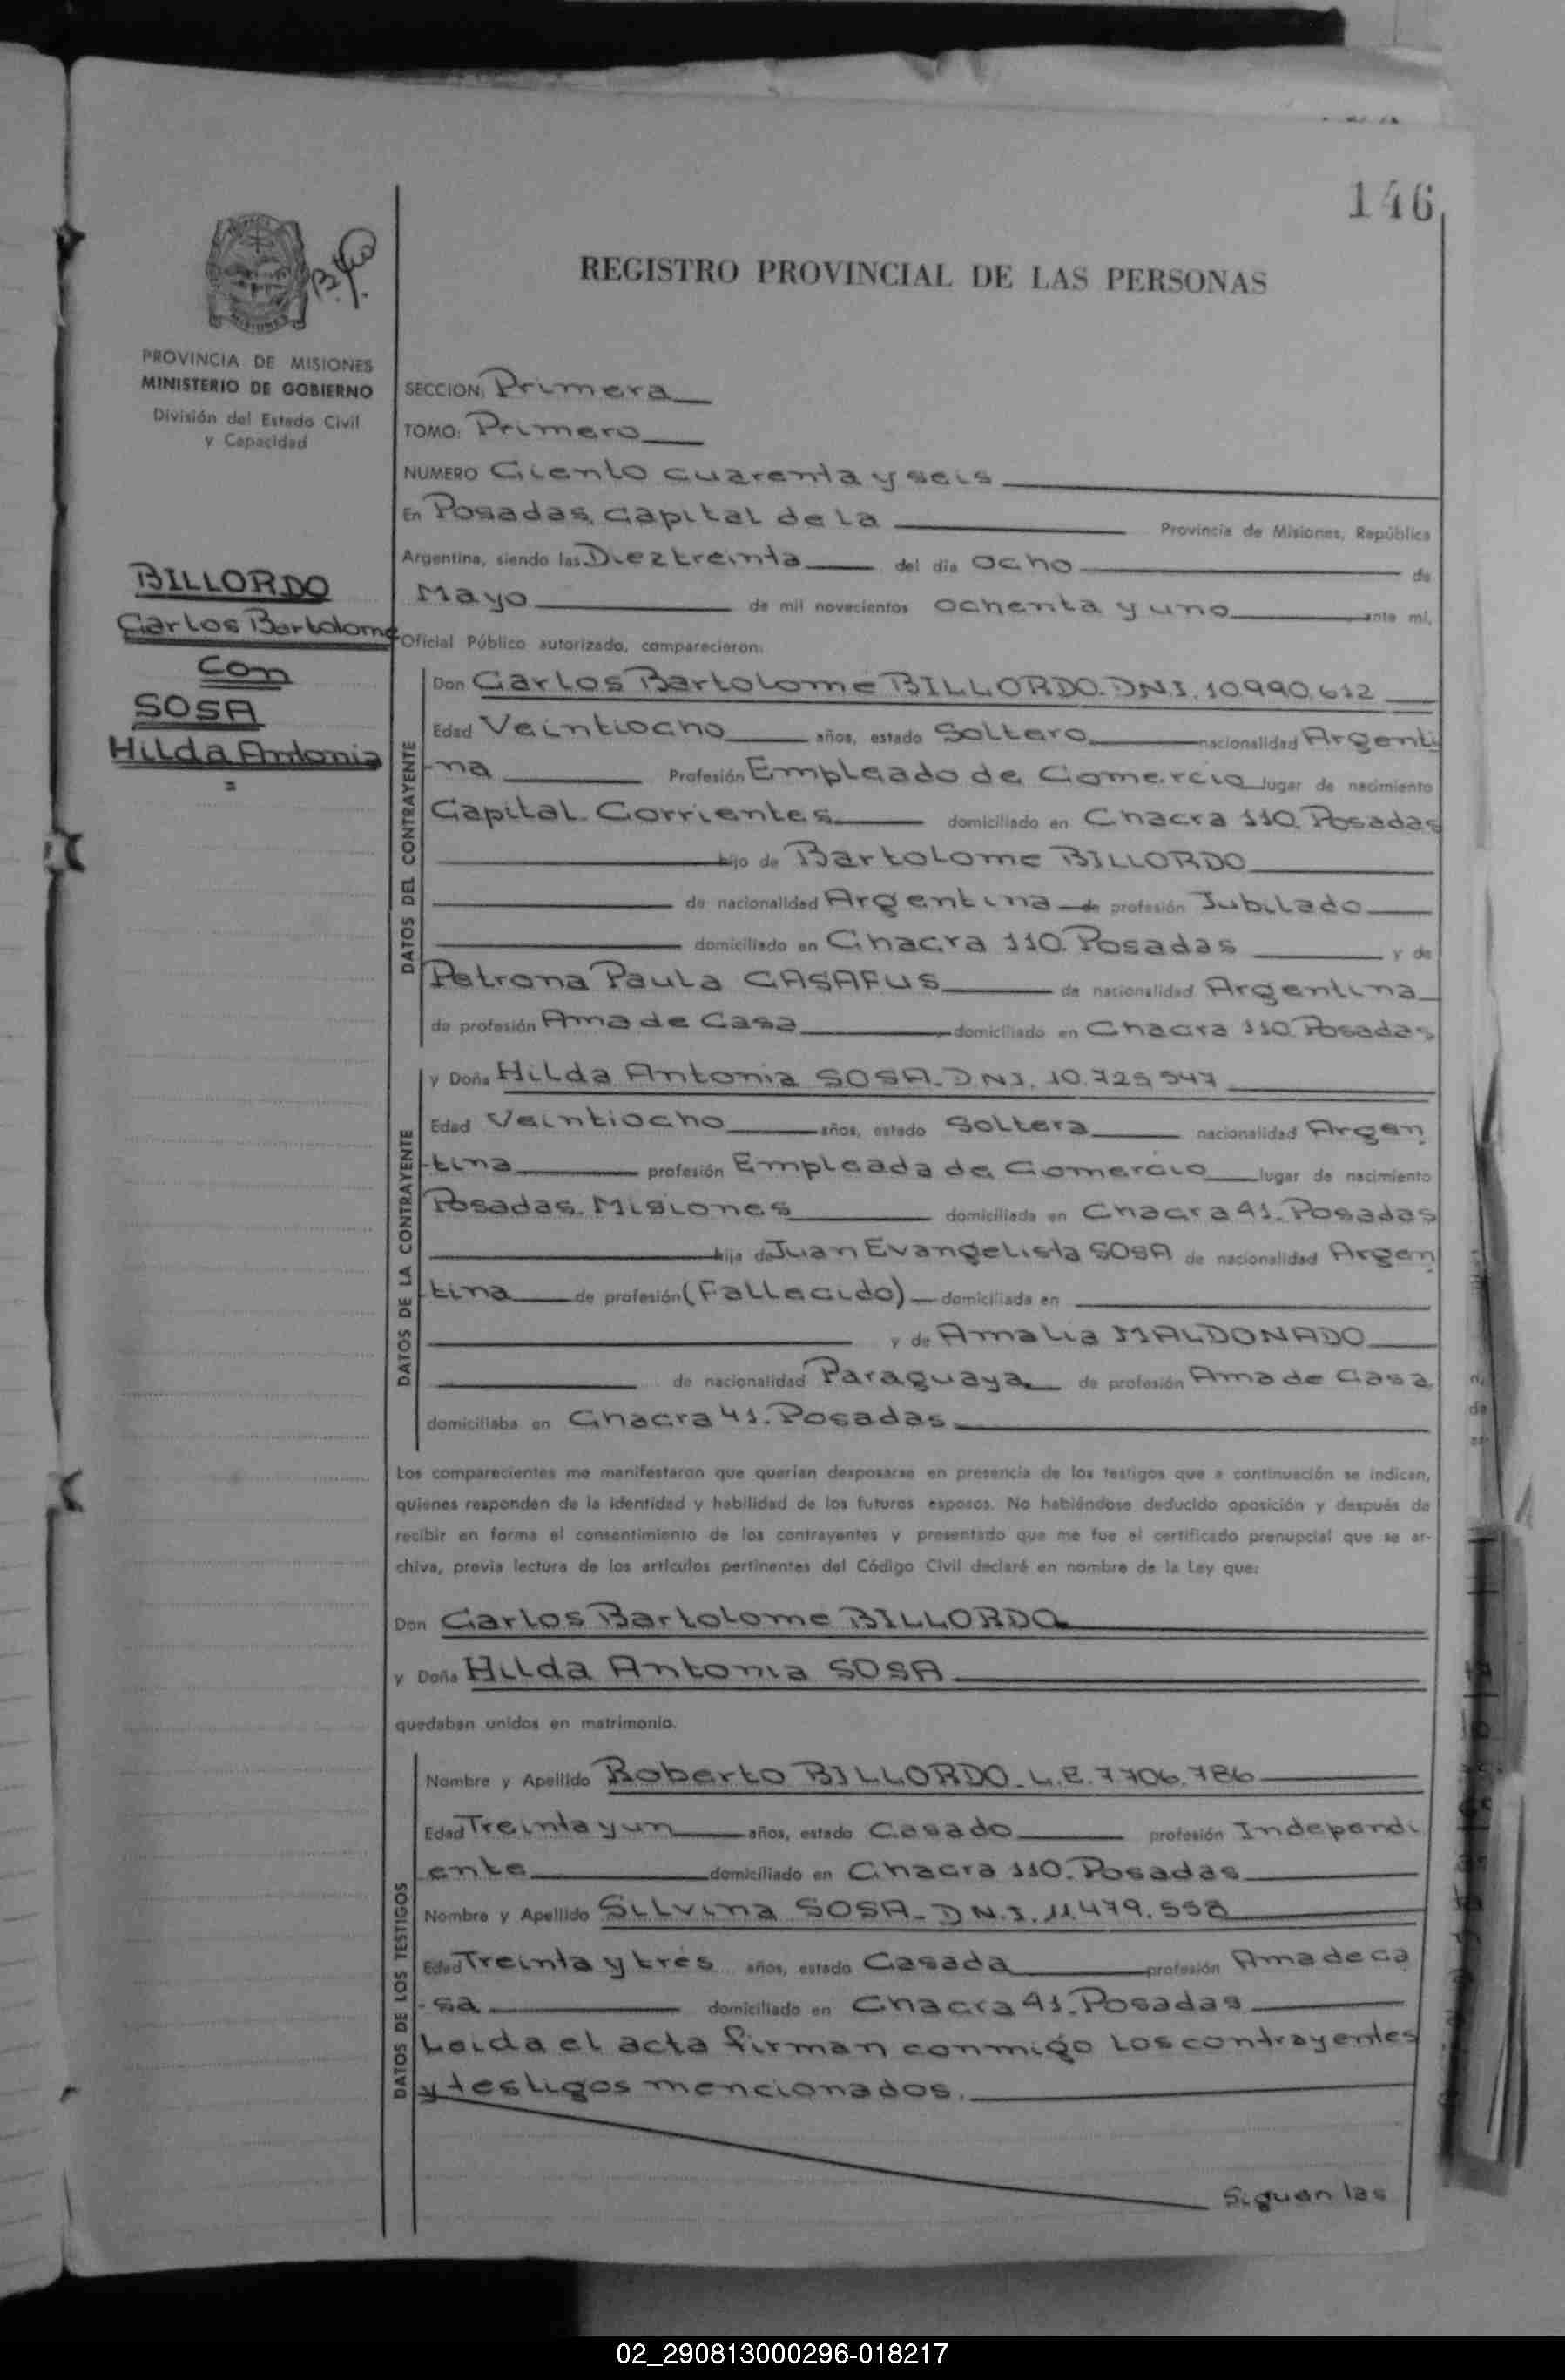 146
REGISTRO PROVINCIAL DE LAS PERSONAS
MISIONES
PROVINCIA DE MISIONES
MINISTERIO DE GOBIERNO
División del Estado Civil
y Capacidad
BILLORDO
Carlos Bartolome
Con
SOSA
Hilda Antonia
SECCION: Primera
TOMO: Primero
NUMERO Ciento cuarenta y seis
En Posadas, Capital de la Provincia de Misiones, República
Argentina, siendo las Diez treinta del día Ocho de
Mayo de mil novecientos Ochenta y uno ante mí,
Oficial Público autorizado, comparecieron:
DATOS DEL CONTRAYENTE
Don Carlos Bartolome BILLORDO. DNI. 10.990.612
Edad Veintiocho años, estado Soltero nacionalidad Argenti
-na Profesión Empleado de Comercio lugar de nacimiento
Capital Corrientes domiciliado en Chacra 110. Posadas
hijo de Bartolome BILLORDO
de nacionalidad Argentina de profesión Jubilado
domiciliado en Chacra 110. Posadas y de
Petrona Paula CASAFUS de nacionalidad Argentina
de profesión Ama de Casa domiciliado en Chacra 110. Posadas
DATOS DE LA CONTRAYENTE
y Doña Hilda Antonia SOSA. DNI. 10.725.547
Edad Veintiocho años, estado Soltera nacionalidad Argen
-tina profesión Empleada de Comercio lugar de nacimiento
Posadas. Misiones domiciliada en Chacra 41. Posadas
hija de Juan Evangelista SOSA de nacionalidad Argen
tina de profesión (Fallecido) domiciliada en
y de Amalia MALDONADO
de nacionalidad Paraguaya de profesión Ama de Casa
domiciliaba en Chacra 41. Posadas
Los comparecientes me manifestaron que querían desposarse en presencia de los testigos que a continuación se indican,
quienes responden de la identidad y habilidad de los futuros esposos. No habiéndose deducido oposición y después de
recibir en forma el consentimiento de los contrayentes y presentado que me fue el certificado prenupcial que se ar-
chiva, previa lectura de los artículos pertinentes del Código Civil declaré en nombre de la Ley que:
Don Carlos Bartolome BILLORDO
y Doña Hilda Antonia SOSA
quedaban unidos en matrimonio.
DATOS DE LOS TESTIGOS
Nombre y Apellido Roberto BILLORDO. L.E. 7.706.786
Edad Treinta y un años, estado Casado profesión Independi
ente domiciliado en Chacra 110. Posadas
Nombre y Apellido Silvina SOSA. D.N.I. 11.479.558
Edad Treinta y tres años, estado Casada profesión Ama de Ca
-sa domiciliado en Chacra 41. Posadas
Leida el acta firman conmigo los contrayentes
y testigos mencionados.
Siguen las
02_290813000296-018217